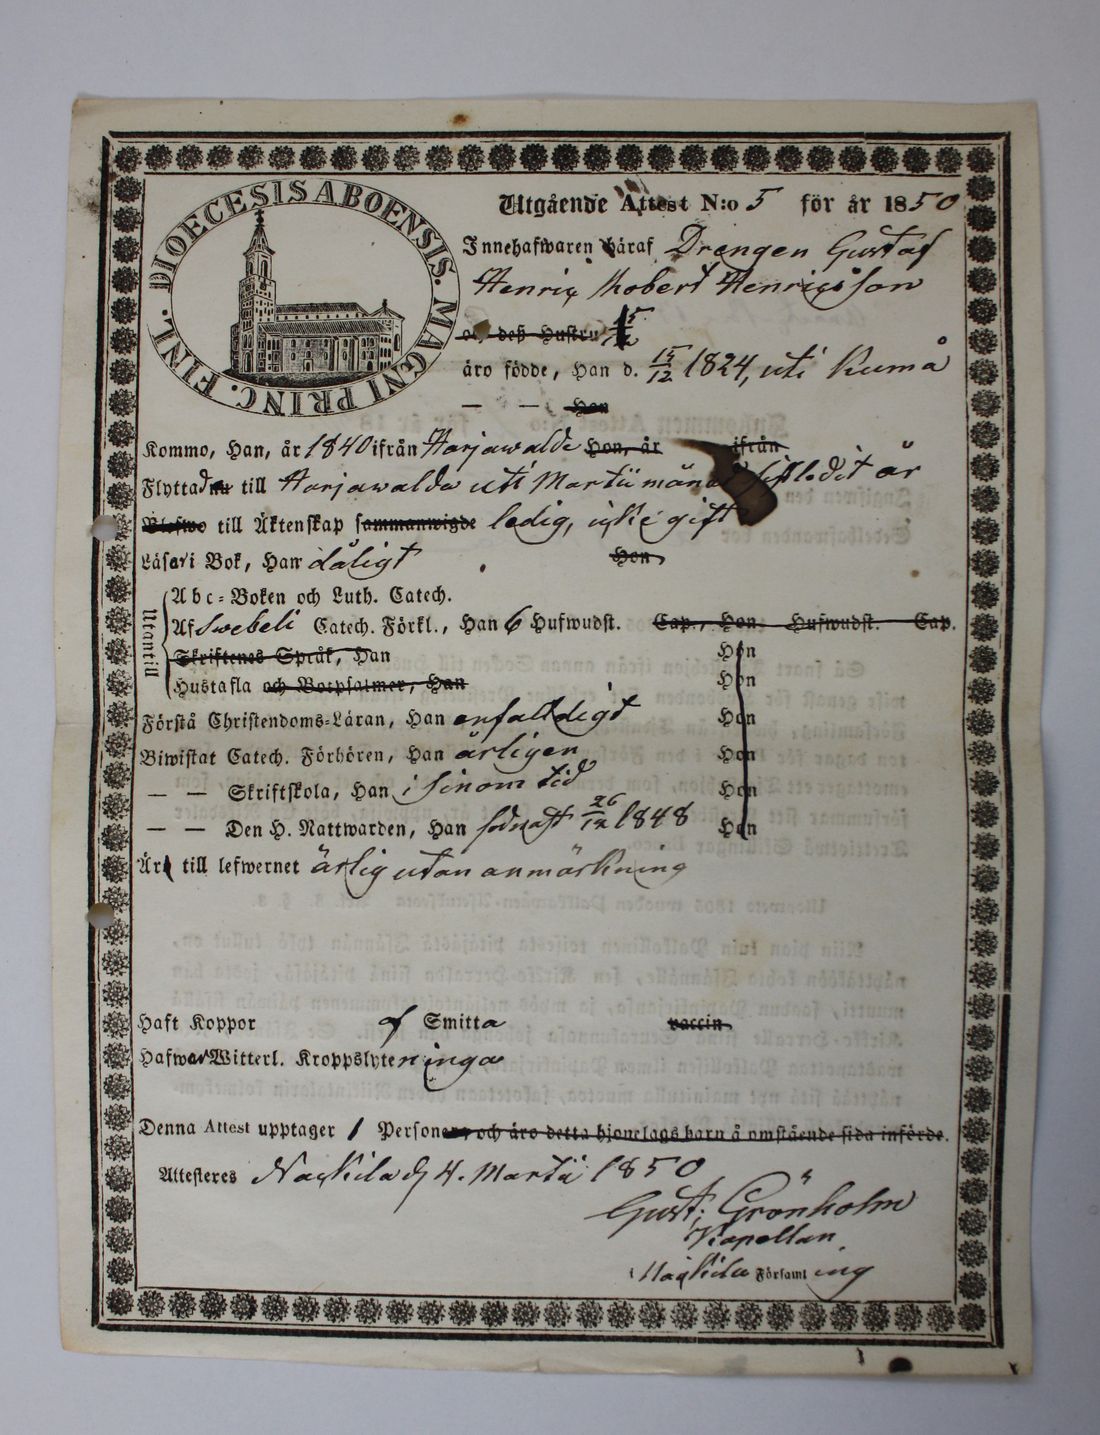 DIOECESIS ABOENSIS. MAGNI PRINC. FINL.
Utgående Attest N:o 5 för år 1850
Innehafwaren häraf Drengen Gustaf
Henric Robert Henricsson
och deß Hustru
äro födde, Han d. 15/12 1824, uti Kumå
— — Hon
Kommo, Han, år 1840 ifrån Harjawalda Hon, år ifrån
Flyttad till Harjawalda uti Martii månad sistledit år
Blefwo till Äktenskap sammanwigde ledig, icke gift
Läser i Bok, Han dåligt Hon
Utantill
Abc-Boken och Luth. Catech.
Af Swebeli Catech. Förkl., Han 6 Hufwudst. Cap., Hon Hufwudst. Cap.
Skriftenes Språk, Han Hon
Hustafla och Botpsalmer, Han Hon
Förstå Christendoms-Läran, Han enfaldigt Hon
Biwistat Catech. Förhören, Han årligen Hon
— — Skriftskola, Han i sinom tid Hon
— — Den H. Nattwarden, Han sednast 26/12 1848 Hon
Är till lefwernet ärlig utan anmärkning
Haft Koppor af Smitta vaccin
Hafwa Witterl. Kroppslyten inga
Denna Attest upptager 1 Personer, och äro detta hjonelags barn å omstående sida införde.
Attesteres Nackila d 4. Martii 1850
Gust. Grönholm
Kapellan
i Nackila Församling